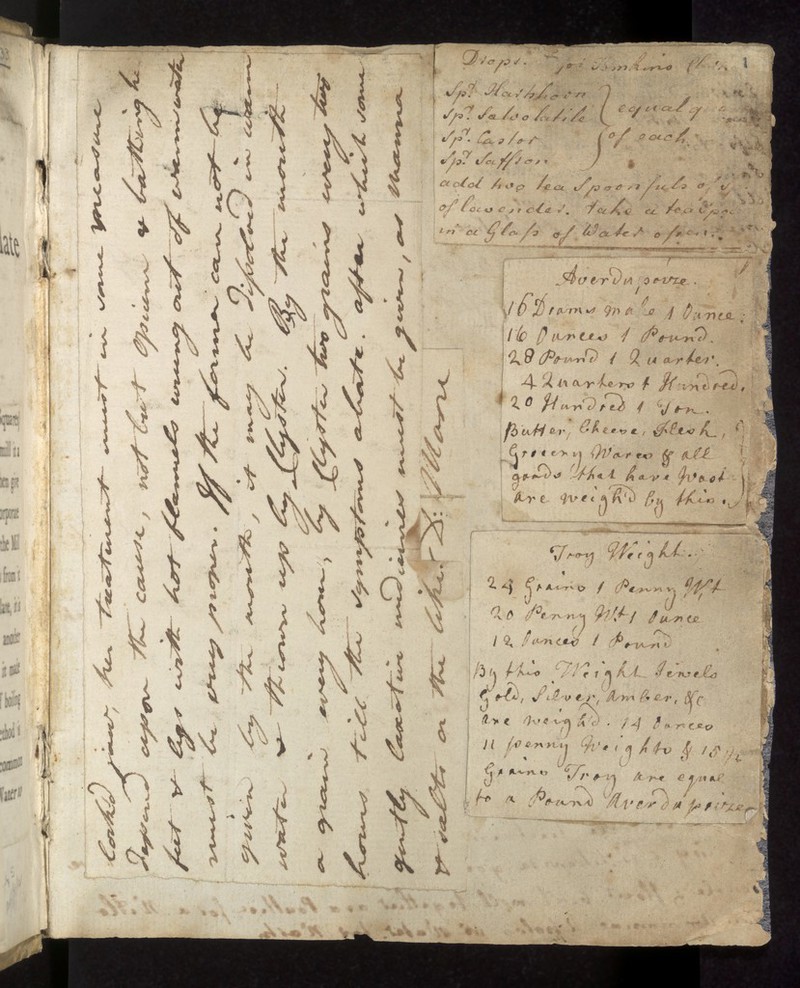 locked jaw, her treatment must in some measure
depend upon the cause, not but Opium & bathing he
feet & legs with hot flannels wrung out of warm water
must be very proper. If the former can not be
given by the mouth, it may be dissolved in warm
water & thrown up by Clyster. By the mouth
a grain every hour, by Clyster two grains every two
hours till the symptoms abate. after which some
gently laxative medicines must be given, as Manna
& salts or the like. Dr. Moore
Drops. for Tomkins
Spt. Hartshorn
Spt. Salvolatile
Spt. Castor
Spt. Saffron
equal q
of each
add two tea Spoonfuls of
of lavender. take a tea
in a Glass of Water often.
Averdupoize.
16 Drams make 1 Ounce.
16 Ounces 1 Pound.
28 Pound 1 Quarter.
4 Quarters 1 Hundred.
20 Hundred 1 Ton.
Butter, Cheese, Flesh,
Grocery Wares & all
goods that have Wast
are weigh'd by this.
Troy Weight.
24 Grains 1 Penny Wt
20 Penny Wt 1 Ounce
12 Ounces 1 Pound
By this Weight Jewels
Gold, Silver, Amber, &c
are weigh'd. 14 Ounces
11 penny Weights & 15 1/2
Grains Troy are equal
to a Pound Averdupoize